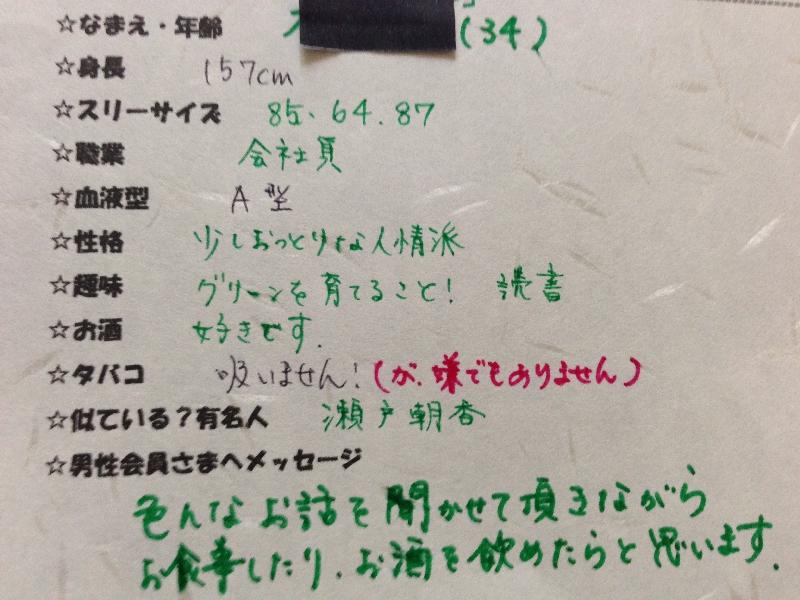 ☆なまえ・年齢 (34)
☆身長 157cm
☆スリーサイズ 85、64.87
☆職業 会社員
☆血液型 A型
☆性格 少しおっとりな人情派
☆趣味 グリーンを育てること! 読書
☆お酒 好きです.
☆タバコ 吸いません!(が、嫌でもありません)
☆似ている?有名人 瀬戸朝香
☆男性会員さまへメッセージ
色んなお話を聞かせて頂きながら
お食事したり、お酒を飲めたらと思います.